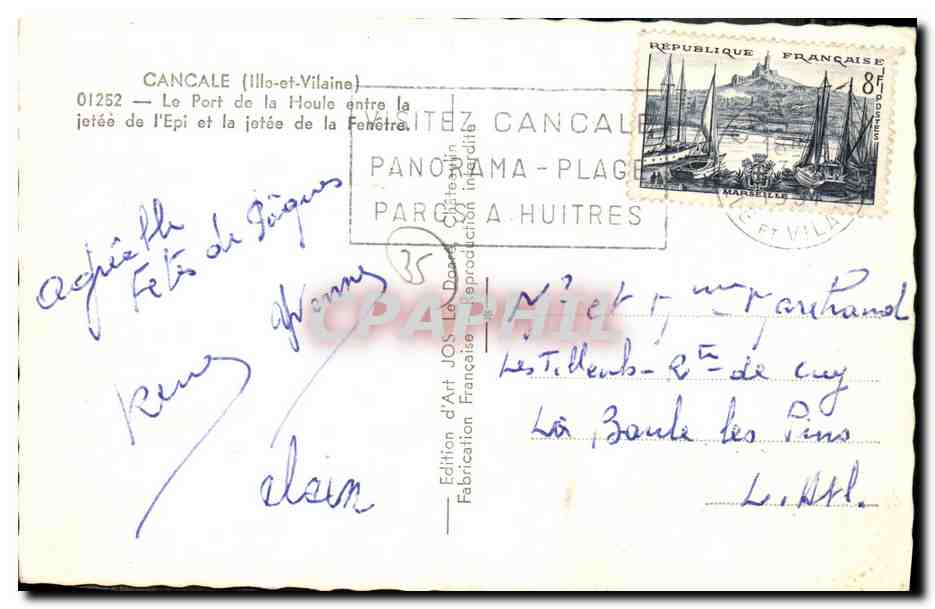 CANCALE (Ille-et-Vilaine)
01252 — Le Port de la Houle entre la
jetéé de l'Epi et la jetée de la Fenêtre.
VISITEZ CANCALE
PANORAMA - PLAGE
PARCS A HUITRES
RÉPUBLIQUE FRANÇAISE
8F
POSTES
MARSEILLE
18
ET VILA
agréable
fêtes de Pâques
Yvonne
René
alain
35
Edition d'Art JOS Le Doaré, Châteaulin
Fabrication Française Reproduction interdite
CPAPHIL
Mr et Mme Marchand
Les Tilleuls - Rte de
La Baule les Pins
L. Atl.